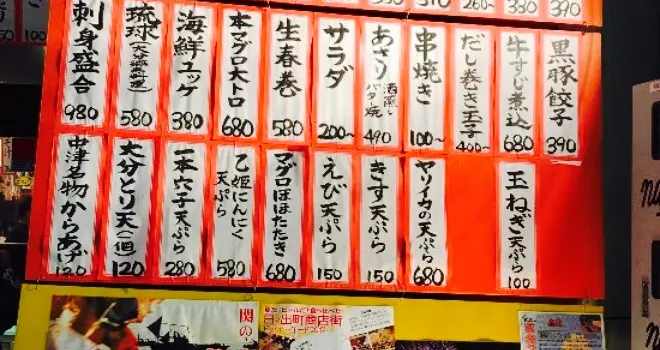 刺身盛合 980
琉球(大分郷土料理) 580
海鮮ユッケ 380
本マグロ大トロ 680
生春巻 580
サラダ 200~
あさり酒蒸しバター焼 490
串焼き 100~
だし巻き玉子 400~
牛すじ煮込 680
黒豚餃子 390
中津名物からあげ 120
大分とり天(一個) 120
一本穴子天ぷら 280
乙姫にんにく天ぷら 580
マグロほほたたき 680
えび天ぷら 150
きす天ぷら 150
ヤリイカの天ぷら 680
玉ねぎ天ぷら 100